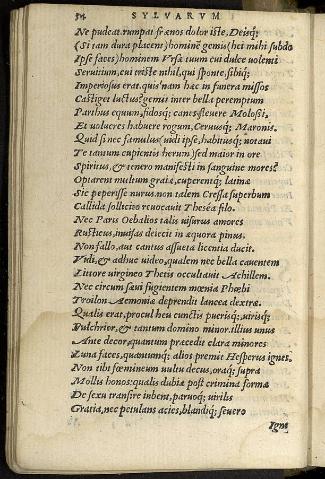 54 SYLVARVM
Ne pudeat. rumpat frænos dolor iste, Deisq;
(Si tam dura placent) hominē gemis (hei mihi subdo
Ipse faces) hominem Vrse tuum cui dulce volenti
Seruitium, cui triste nihil, qui sponte, sibiq;
Imperiosus erat. quis nam hæc in funera missos
Castiget luctus? gemit inter bella peremptum
Parthus equum, fidosq; canes fleuere Molossi,
Et volucres habuere rogum, Ceruusq; Maronis.
Quid si nec famulus? vidi ipse, habitusq; notaui
Te tantum cupientis herum) sed maior in ore
Spiritus, & tenero manifesti in sanguine mores?
Optarent multum gratæ, cuperentq; latinæ
Sic peperisse nurus. non talem Cressa superbum
Callida sollicito reuocauit Thesea filo.
Nec Paris Oebalios talis visurus amores
Rusticus, inuisas deiecit in æquora pinus.
Non fallo, aut cantus assueta licentia ducit.
Vidi, & adhuc video, qualem nec bella cauentem
Littore virgineo Thetis occultauit Achillem.
Nec circum sæui fugientem mœnia Phœbi
Troilon Aemoniæ deprendit lancea dextræ.
Qualis erat, procul heu cunctis puerisq; virisq;
Pulchrior, & tantum domino minor. illius vnus
Ante decor, quantum præcedit clara minores
Luna faces, quantumq; alios premit Hesperus ignes.
Non tibi fœmineum vultu decus, oraq; supra
Mollis honos: qualis dubiæ post crimina formæ
De sexu transire iubent, paruoq; virilis
Gratia, nec petulans acies, blandiq; seuero
Igni